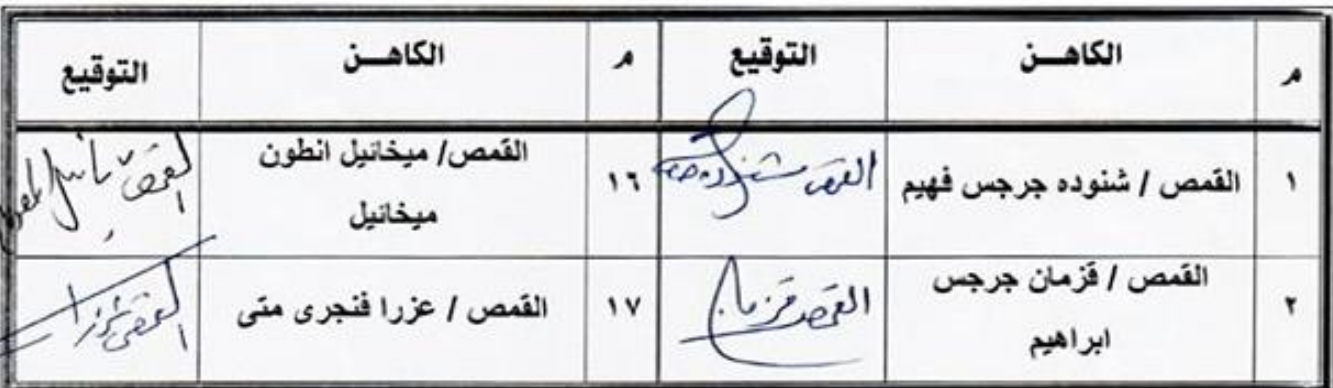 م الكاهــن التوقيع م الكاهــن التوقيع
١ القمص / شنوده جرجس فهيم القمص شنوده ١٦ القمص/ ميخائيل انطون
ميخائيل
٢ القمص / قزمان جرجس القمص قزمان ١٧ القمص / عزرا فنجرى متى القمص عزرا
ابراهيم